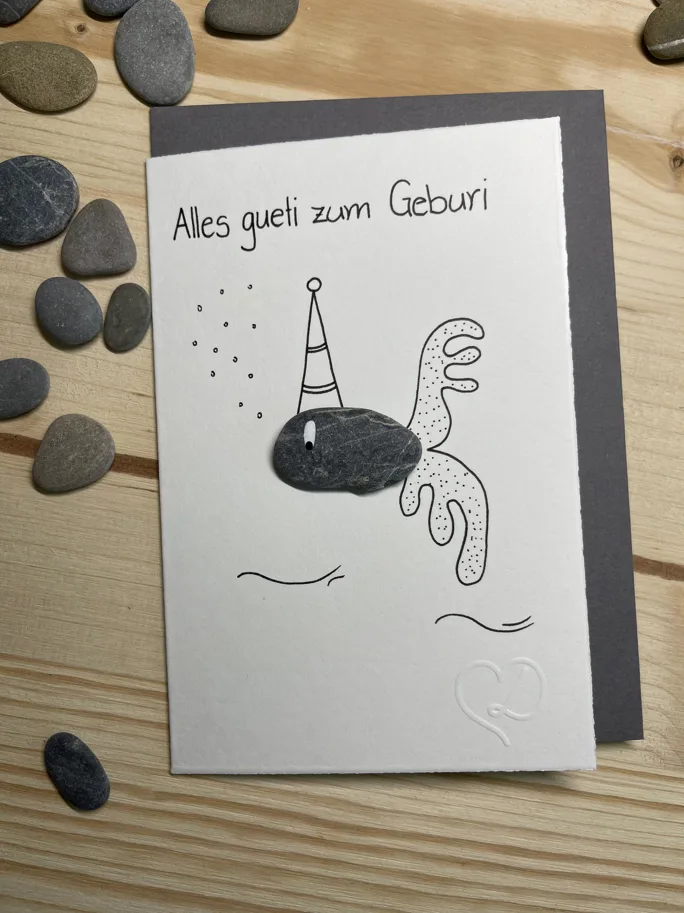 Alles gueti zum Geburi